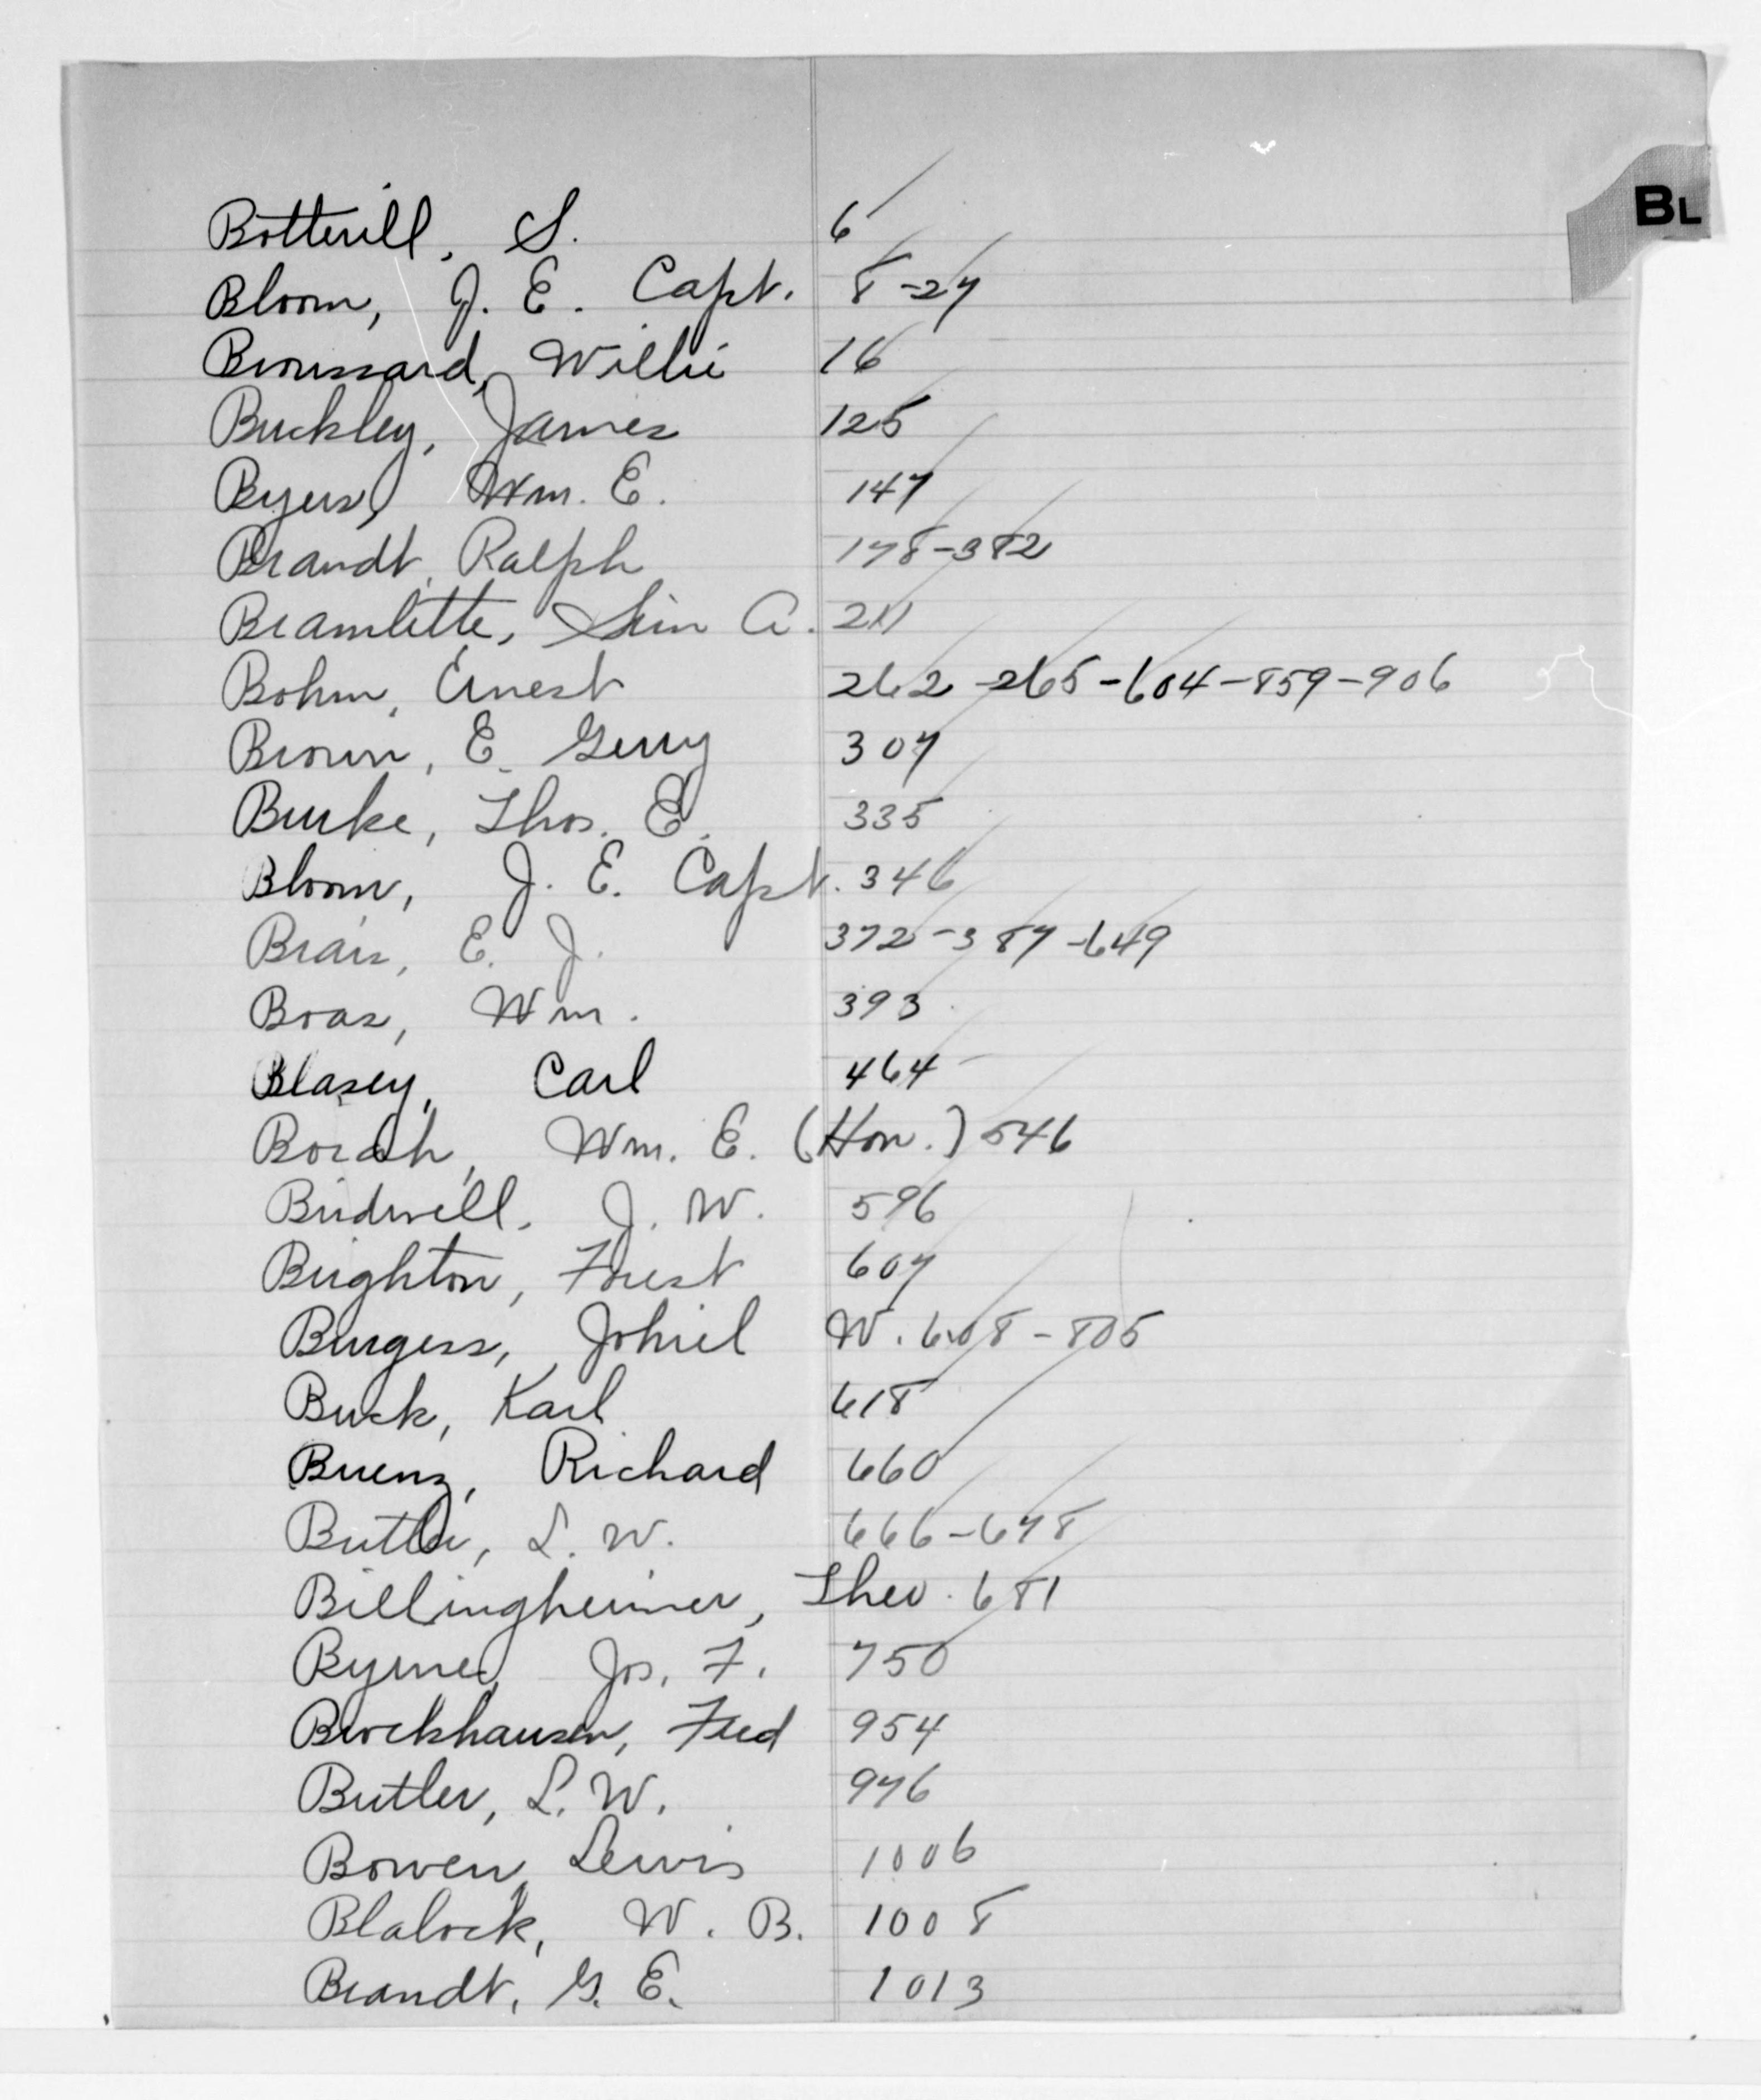 BL
Botterill, S. 6
Bloom, J. E. Capt. 8-27
Broussard, Willie 16
Buckley, James 125
Byers, Wm. E. 147
Brandt, Ralph 178-382
Bramlette, Sim A. 211
Bohm, Ernest 262-265-604-859-906
Brown, E. Gerry 307
Burke, Thos. E. 335
Bloom, J. E. Capt. 346
Brais, E. J. 372-387-649
Boas, Wm. 393
Blasey, Carl 464
Borah, Wm. E. (Hon.) 546
Bridwell, J. W. 596
Brighton, Forest 607
Burgess, Johiel W. 608-805
Buck, Karl 618
Buenz, Richard 660
Butler, L. W. 666-678
Billingheimer, Theo. 681
Byrne, Jos. F. 750
Brockhausen, Fred 954
Butler, L. W. 976
Bowen, Lewis 1006
Blalock, W. B. 1008
Brandt, G. E. 1013